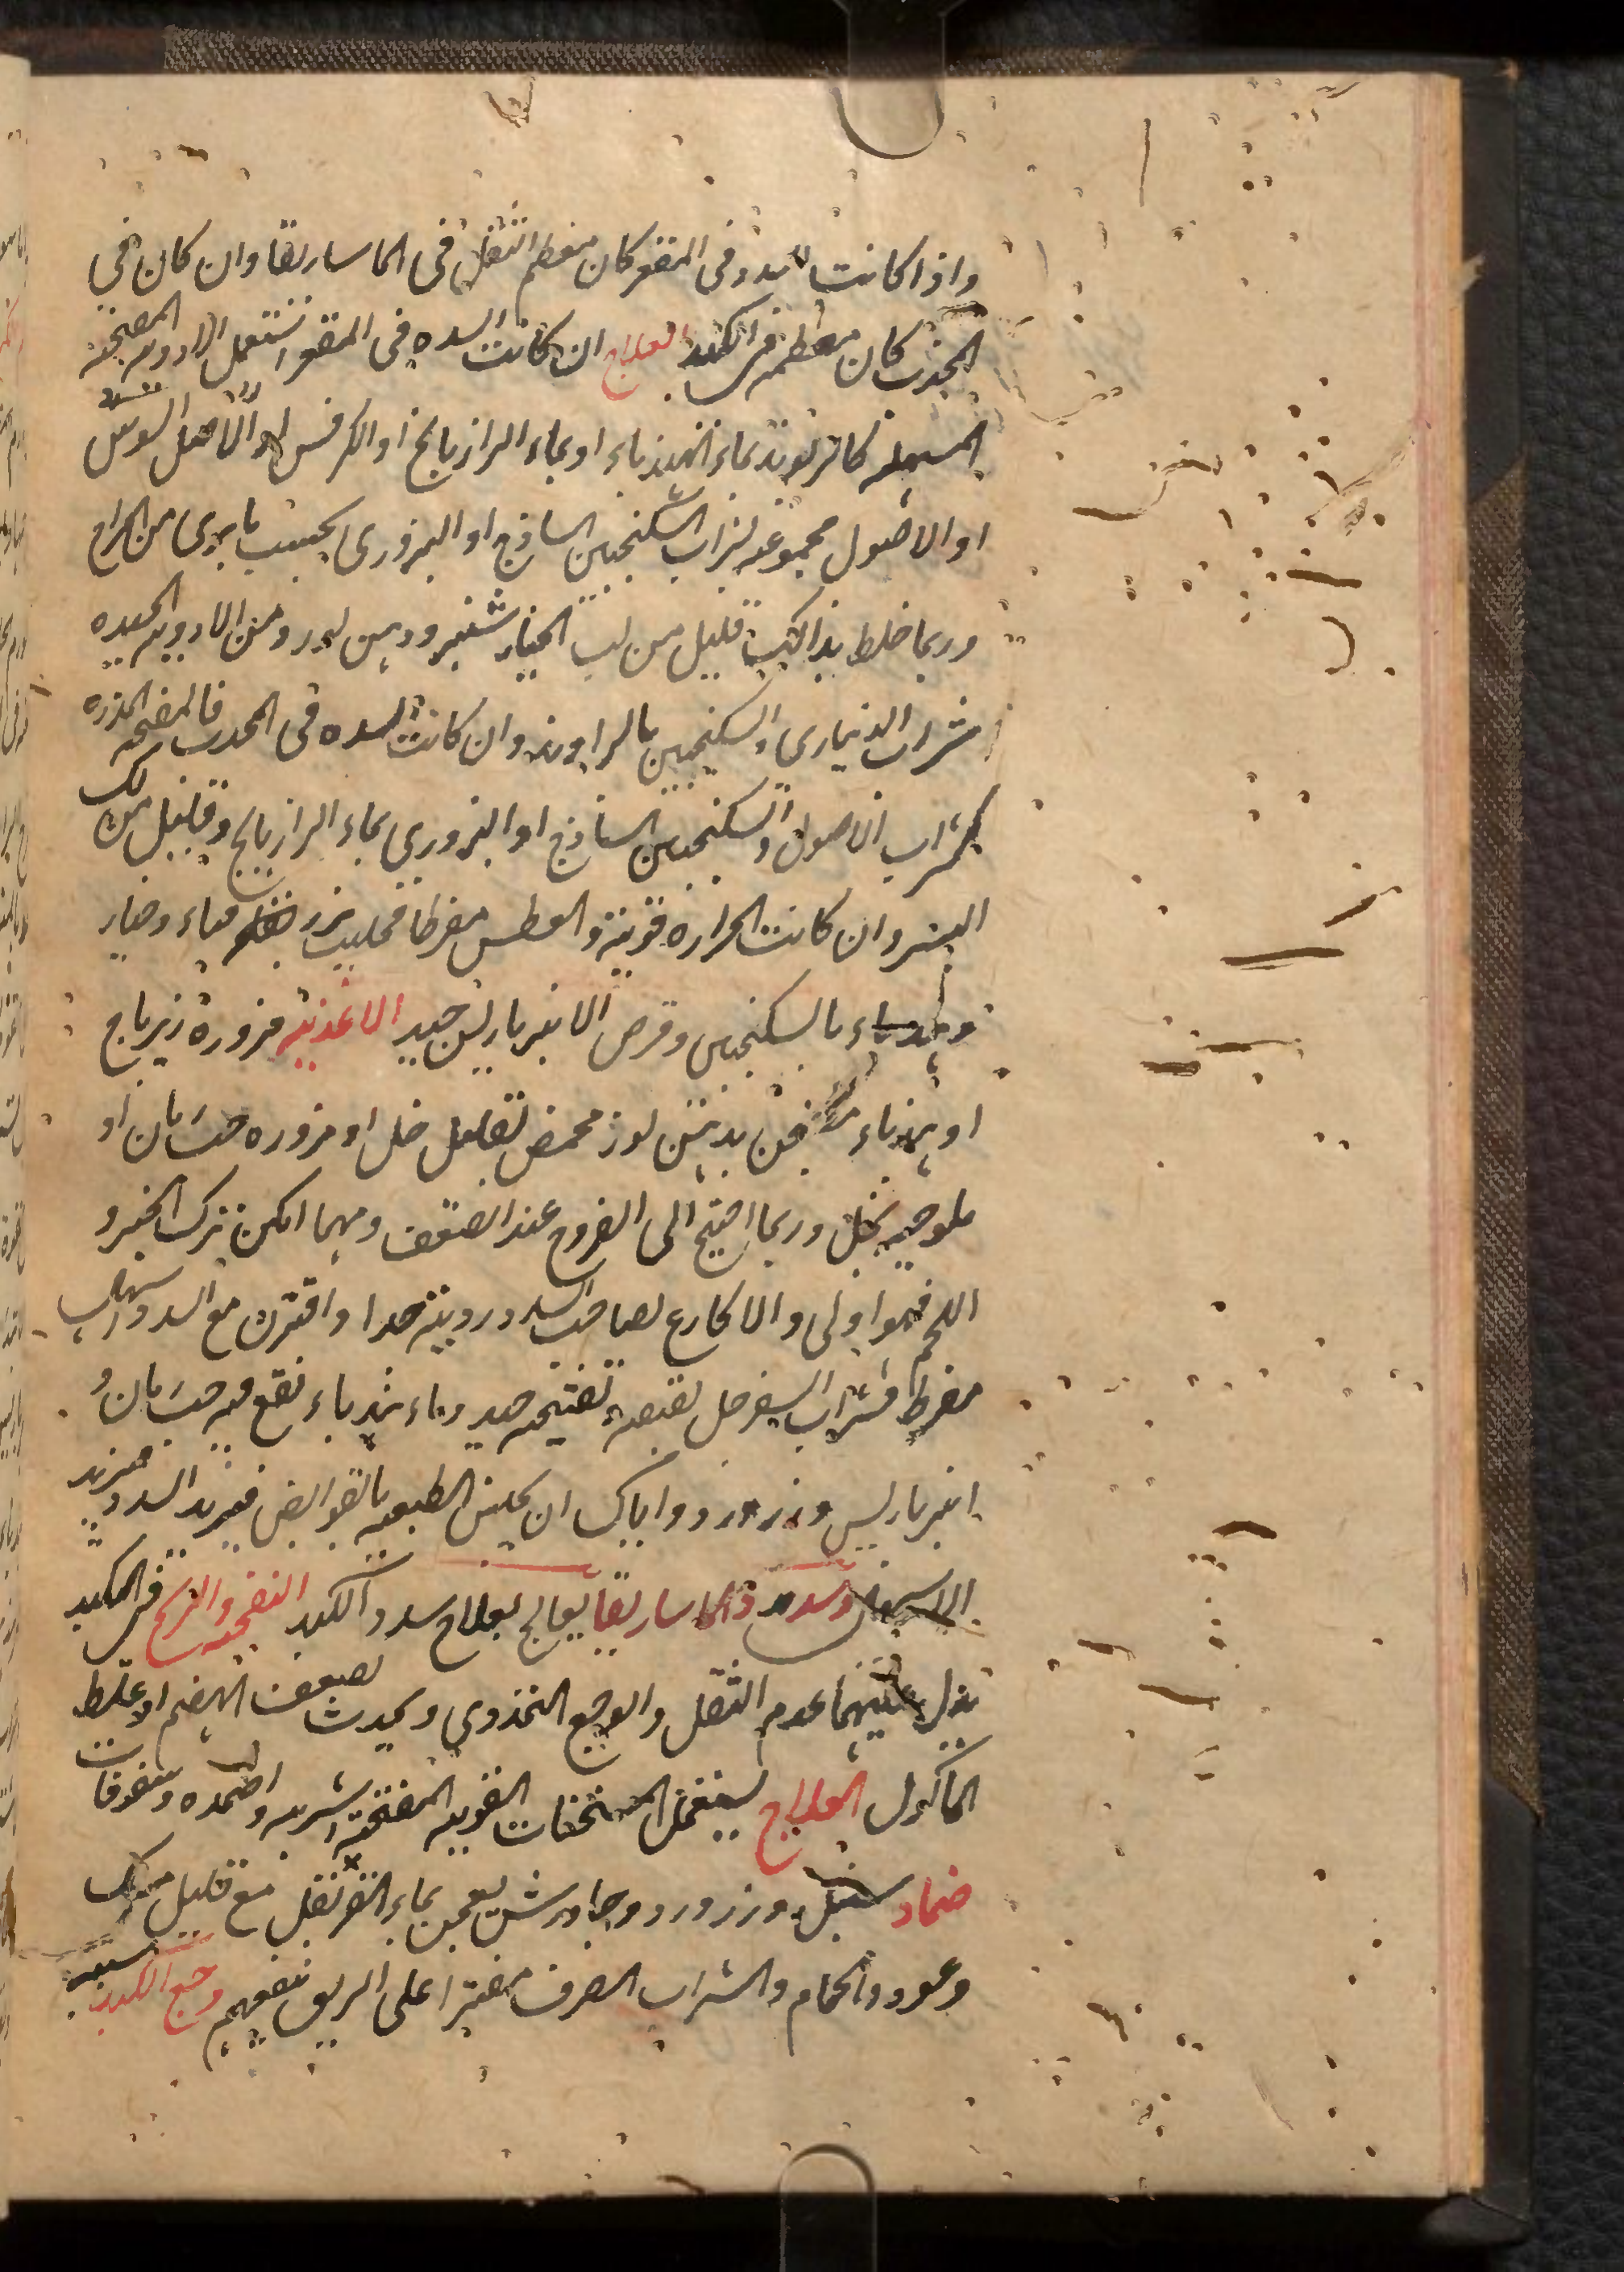 واذا كانت السدد فى المقعر كان معظم الثقل فى الماساريقا وان كان فى
المحدب كان معظمه فى الكبد العلاج ان كانت السده فى المقعر استعمل الادويه المفتحه
المسهله كالريوند بماء الهندباء او بماء الرازيانج او الكرفس او الاصل السوس
او الاصول مجموعه لشراب السكنجبين الساذج او البزورى بحسب ما يرى من المزاج
وربما خلط بذلك قليل من لب الخيار شنبر ودهن لوز ومن الادويه الجيده
شراب الدينارى والسكنجبين بالراوند وان كانت السده فى المحدب فالمفتحه المدره
كشراب الاصول والسكنجبين الساذج او البزورى بماء الرازيانج وقليل من لك
اليسر وان كانت الحراره قويه والعطش مفرطا فحليب بزر قثاء وخيار
وهندباء بالسكنجبين وقرص الانبرباريس جيد الاغذيه مزورة زيرباج
او هندباء بدهن لوز محمض بقليل خل او مزوره حب رمان او
ملوخيه بخل وربما احتيج الى الفروج عند الضعف ومهما امكن ترك الخبز و
اللحم فهو اولى والاكارع لصاحب السدد رديئه جدا واقترن مع السدد اسهال
مفرط فشراب السفرجل لقبضه تفتيحه جيد وماء هندباء نقع فيه حب رمان و
انبرباريس وزر ورد واياك ان يحبس الطبيعه بالقوابض فيزيد السدد ويزيد
الاسهال وسدد الماساريقا يعالج بعلاج سدد الكبد النفخه والريح فى الكبد
يدل عليهما عدم الثقل والوجع التمددي ويحدث لضعف الهضم او غلظ
الماكول العلاج يستعمل المسخنات القويه المفتحه اشربه واضمده وسفوفات
ضماد سنبل وزر ورد وجاورش يعجن بماء القرنفل مع قليل مسك
وعود والحمام والشراب الصرف مفترا على الريق ينفعهم وجع الكبد سببه